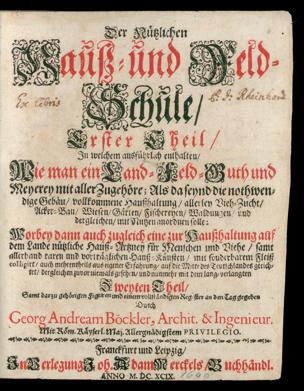 Der Nützlichen
Hauß- und Feld-
Schule/
Ex libris
Erster Theil/
In welchem außführlich enthalten/
Wie man ein Land- Feld-Guth und
Meyerey mit aller Zugehöre: Als da seynd die nothwen-
dige Gebäu/ vollkommene Haußhaltung/ allerley Vieh-Zucht/
Acker-Bau/ Wiesen/ Gärten/ Fischereyen/ Waldungen/ und
dergleichen/ mit Nutzen anordnen solle:
Worbey dann auch zugleich eine zur Haußhaltung auf
dem Lande nützliche Hauß-Artzney für Menschen und Viehe/ samt
allerhand raren und vortrefflichen Hauß-Künsten/ mit sonderbarem Fleiß
colligirt/ auch mehrentheils aus eigener Erfahrung/ auf die Mitte des Teutschlandes gerich-
tet/ dergleichen zuvor niemals gesehen/ und nunmehr mit dem lang-verlangten
Zweyten Theil/
Samt darzu gehörigen Figuren und einem vollständigen Register an den Tag gegeben
Durch
Georg Andream Böckler, Archit. & Ingenieur.
Mit Röm. Käyserl. Maj. Allergnädigstem PRIVILEGIO.
Franckfurt und Leipzig/
In Verlegung Joh. Adam Merckels/ Buchhändl.
ANNO M. DC. XCIX.